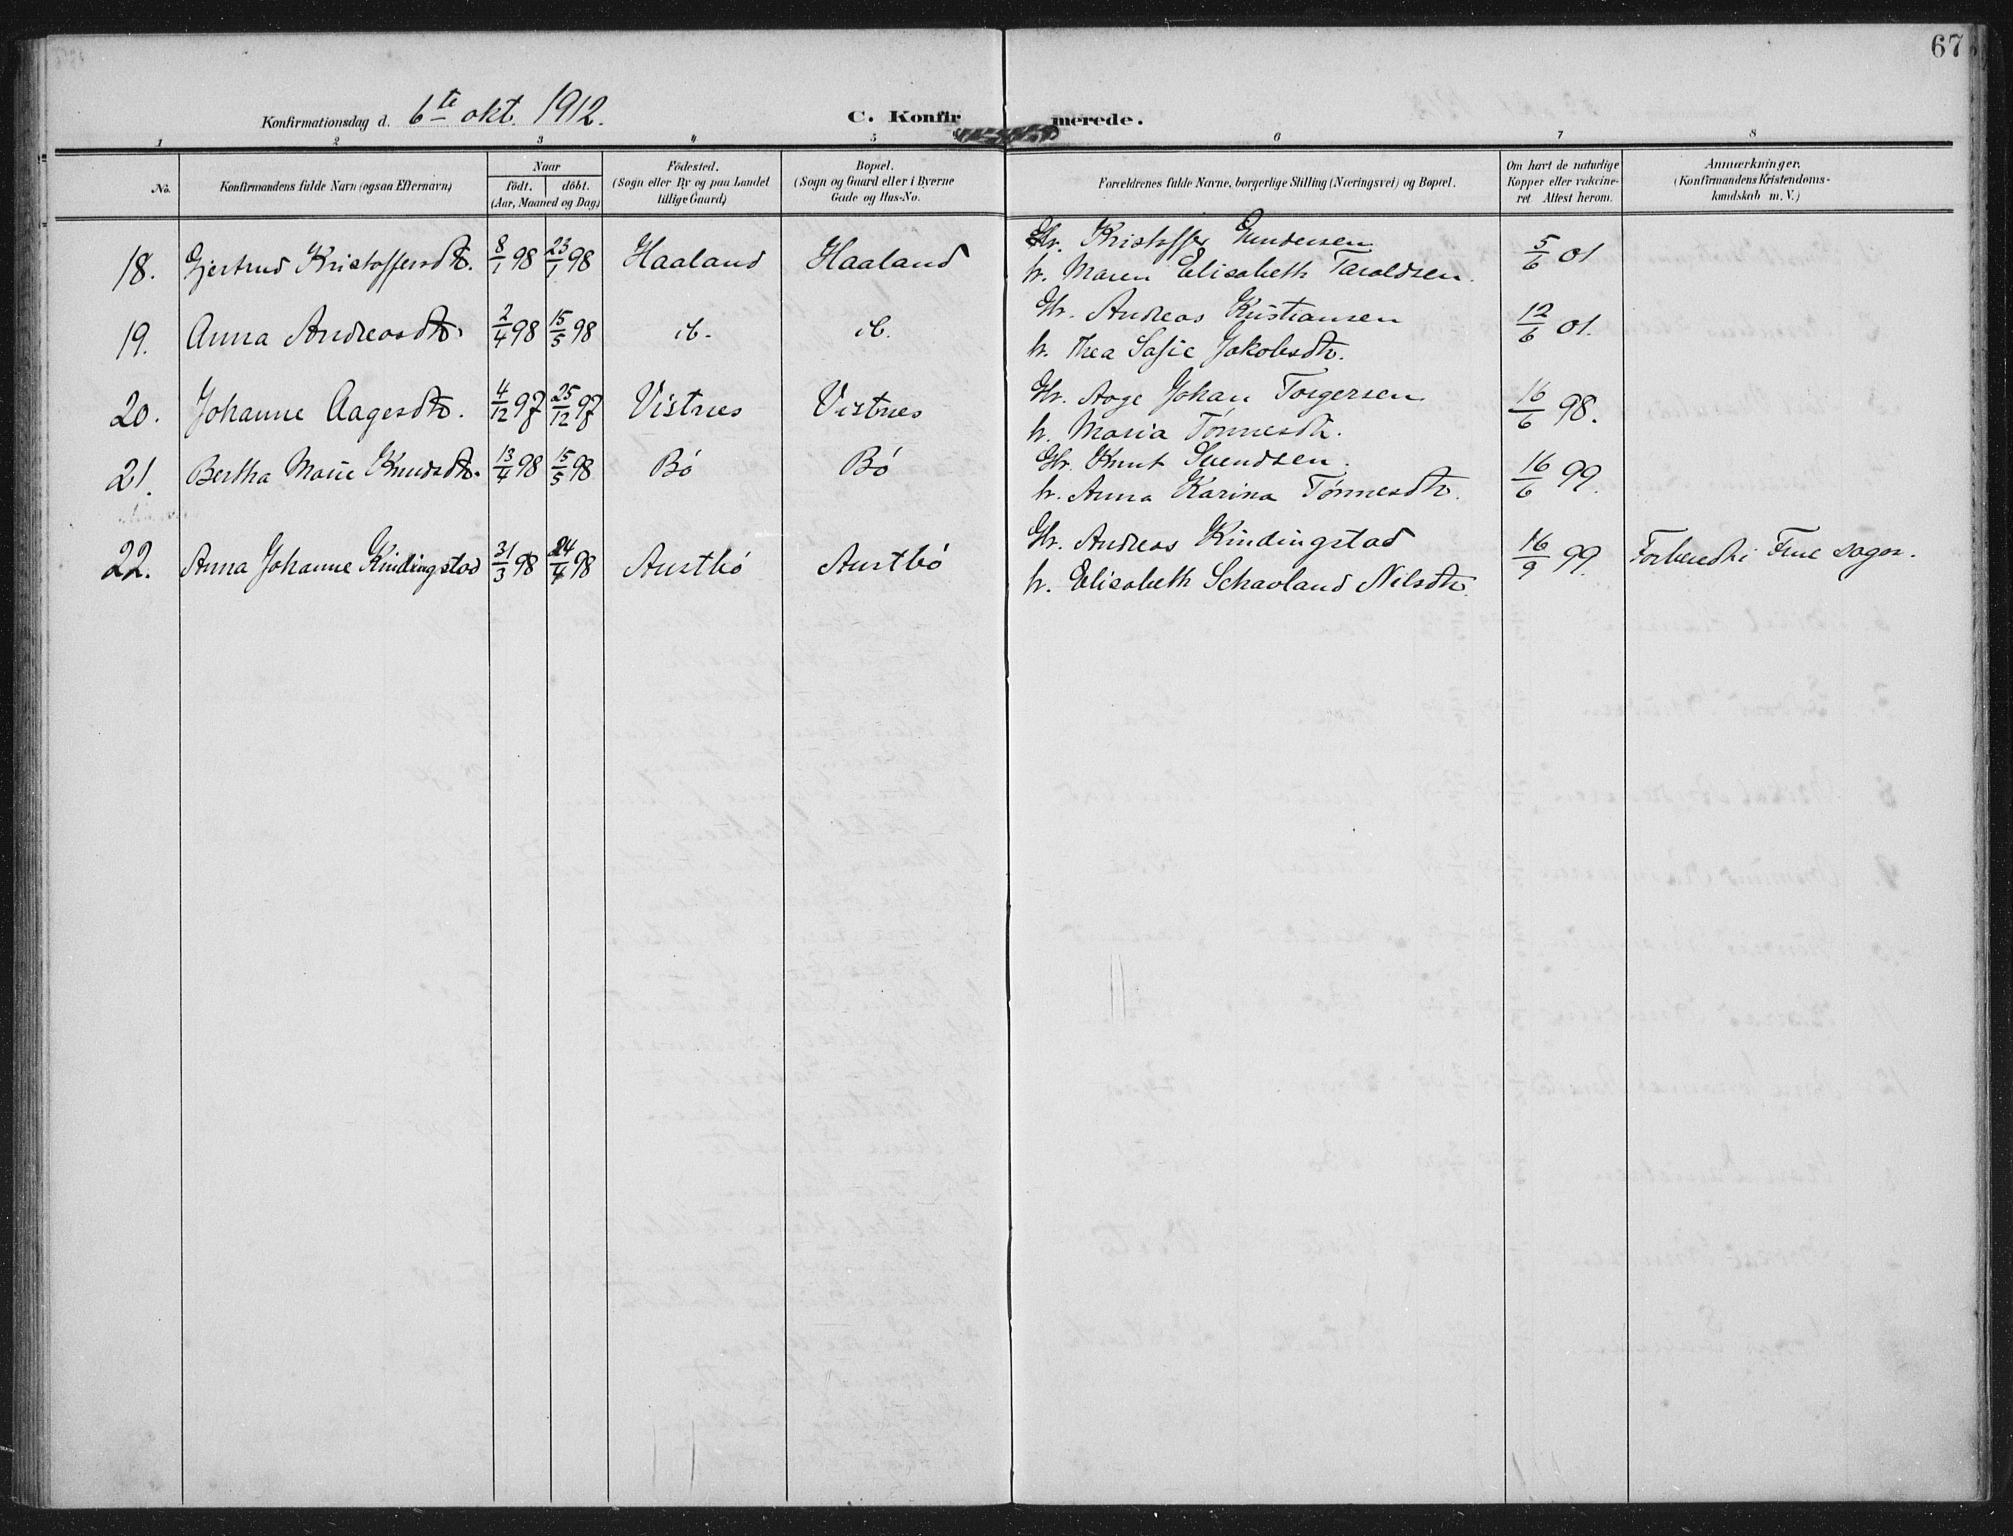 67
Konfirmationsdag d. 6te okt. 1912. C. Konfirmerede.
1 2 3 4 5 6 7 8
No. Konfirmandens fulde Navn (ogsaa Efternavn) Naar født. døbt. (Aar, Maaned og Dag) Fødested. (Sogn eller By og paa Landet tillige Gaard) Bopæl. (Sogn og Gaard eller i Byerne Gade og Hus-No. Forældrenes fulde Navne, borgerlige Stilling (Næringsvei) og Bopæl. Om havt de naturlige Kopper eller vakcineret Attest herom. Anmærkninger. (Konfirmandens Kristendomskundskab m. V.)
18. Gjertrud Kristoffersdtr. 8/1 98 23/1 98 Haaland Haaland Gbr. Kristoffer Gundersen 5/6 01
h. Maren Elisabeth Taraldsen.
19. Anna Andreasdtr. 2/4 98 15/5 98 ib. ib. Gbr. Andreas Kristiansen 12/6 01.
h. Thea Sofie Jakobsdtr.
20. Johanne Aagesdtr. 4/12 97 25/12 97 Vistnes Vistnes Gbr. Aage Johan Torgersen 16/6 98.
h. Maria Tønnesdtr.
21. Bertha Marie Knudsdtr. 13/4 98 15/5 98 Bó Bó Gbr. Knut Svendsen. 16/6 99.
h. Anna Karina Tønnesdtr.
22. Anna Johanne Kindingstad 31/3 98 24/4 98 Austbó Austbó Gbr. Andreas Kindingstad 16/9 99. Forberedt i dager.
h. Elisabeth Schavland Nilsdtr.